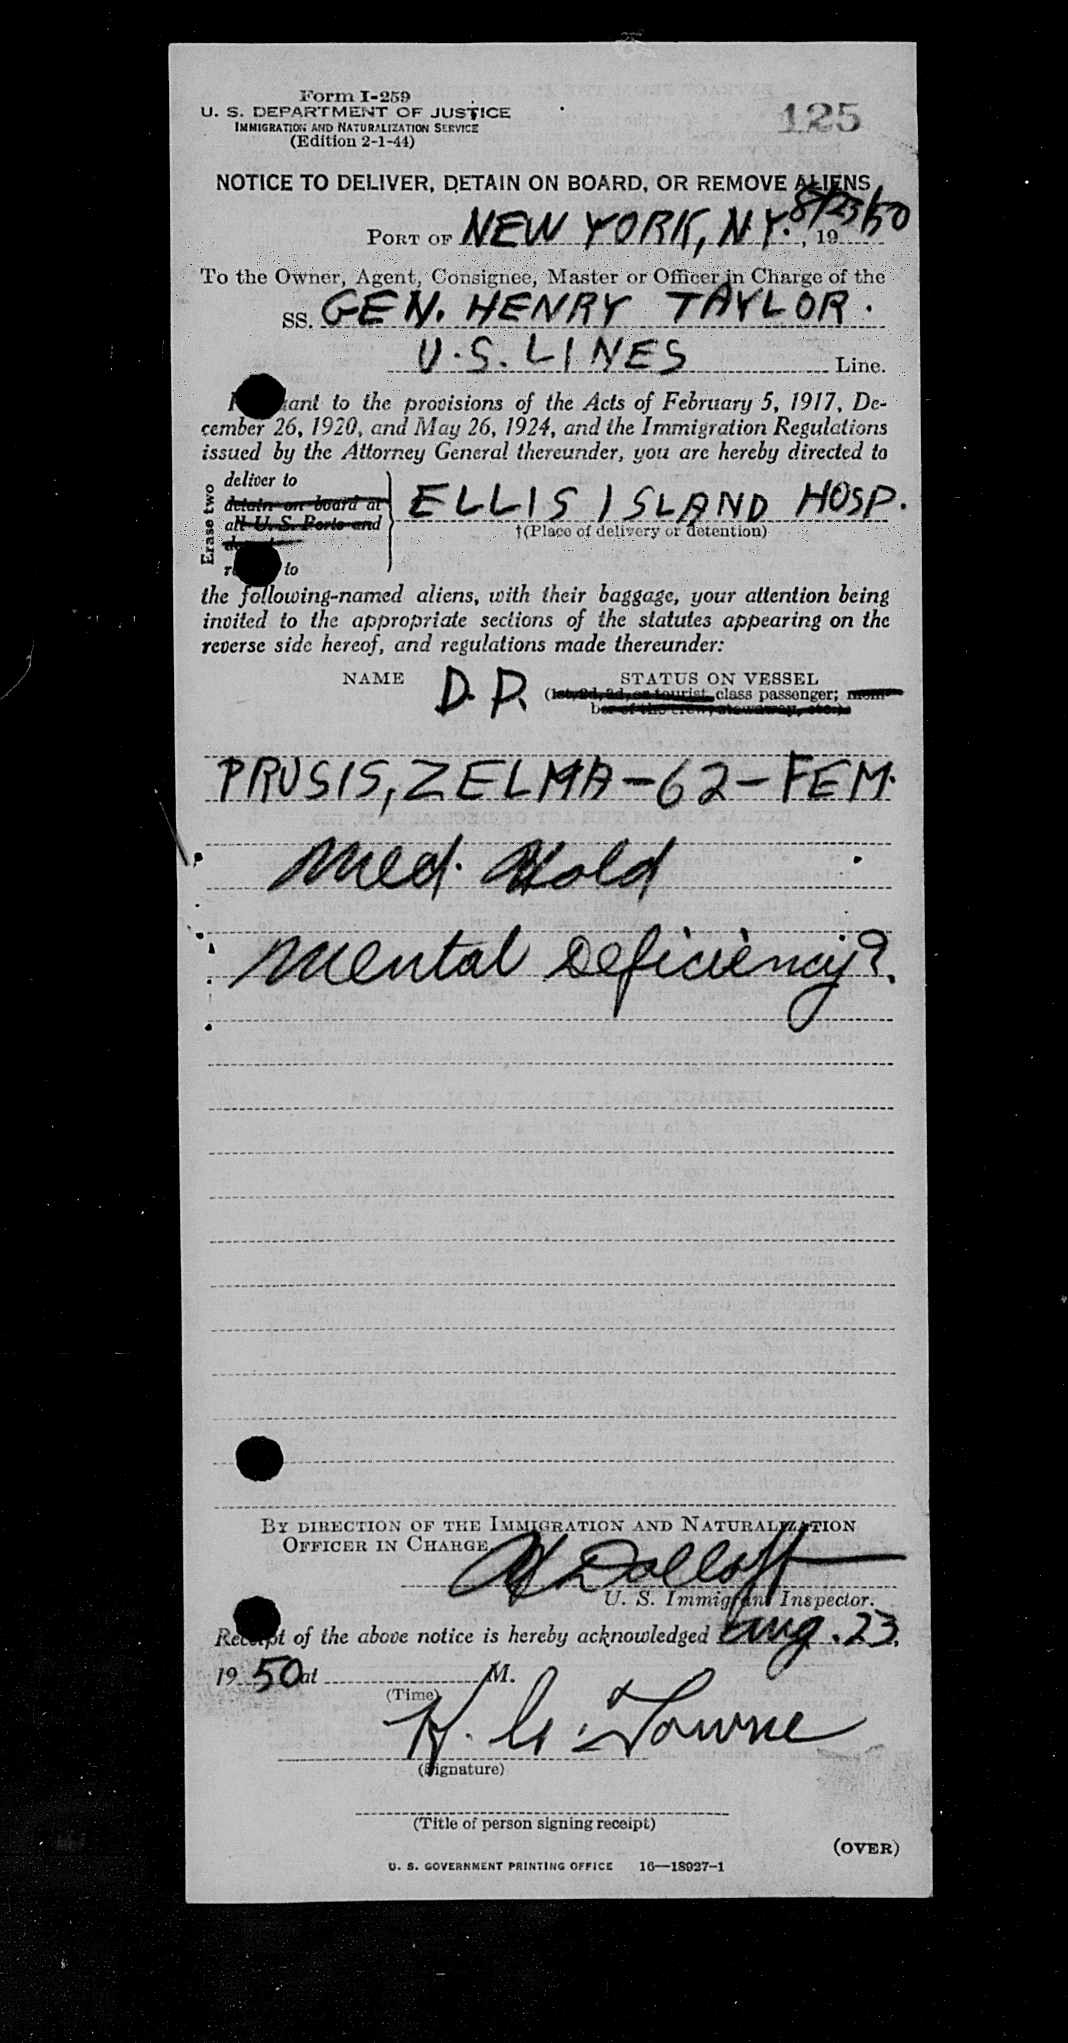 Form I-259
U. S. DEPARTMENT OF JUSTICE
IMMIGRATION AND NATURALIZATION SERVICE
(Edition 2-1-44)
125
NOTICE TO DELIVER, DETAIN ON BOARD, OR REMOVE ALIENS
8/23/50
PORT OF NEW YORK, N.Y., 19
To the Owner, Agent, Consignee, Master or Officer in Charge of the
SS. GEN. HENRY TAYLOR.
U.S. LINES Line.
to the provisions of the Acts of February 5, 1917, De-
cember 26, 1920, and May 26, 1924, and the Immigration Regulations
issued by the Attorney General thereunder, you are hereby directed to
Erase two
deliver to
detain on board at
all U. S. Ports and
to
ELLIS ISLAND HOSP.
†(Place of delivery or detention)
the following-named aliens, with their baggage, your attention being
invited to the appropriate sections of the statutes appearing on the
reverse side hereof, and regulations made thereunder:
NAME D.P. STATUS ON VESSEL
(1st, 2d, 3d, or tourist class passenger; mem-
ber of the crew, stowaway, etc.)
PRUSIS, ZELMA-62-FEM.
Med. Hold
Mental Deficiency?
BY DIRECTION OF THE IMMIGRATION AND NATURALIZATION
OFFICER IN CHARGE
Dolloff
U. S. Immigrant Inspector.
Receipt of the above notice is hereby acknowledged Aug. 23,
19 50 at M.
(Time)
Towne
(Signature)
(Title of person signing receipt)
(OVER)
U. S. GOVERNMENT PRINTING OFFICE 16—18927-1